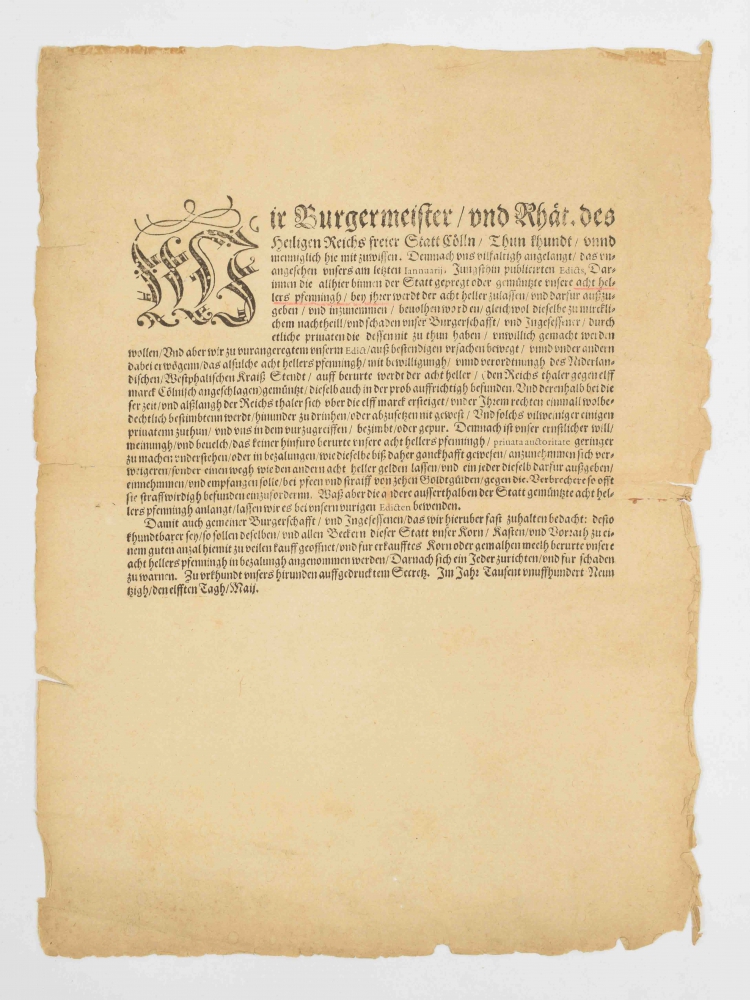 Wir Burgermeister / vnd Rhät. des
Heiligen Reichs freier Statt Cölln / Thun khundt / vnnd
menniglich hie mit zuwissen. Demnach vns vilfaltigh angelangt / das vn-
angesehen vnsers am letzten Ianuarij, Jungsthin publicirten Edicts, Dar-
innen die allhier binnen der Statt gepregt oder gemüntzte vnsere acht hel-
lers pfenningh / bey ihrer werdt der acht heller zulassen / vnd darfur außzu-
geben / vnd inzunemmen / beuolhen worden / gleich wol dieselbe zu mirckli-
chem nachtheill / vnd schaden vnser Burgerschafft / vnd Ingesessener / durch
etliche priuaten die dessen nit zu thun haben / vnwillich gemacht werden
wollen / Vnd aber wir zu vurangeregtem vnserm Edict / auß bestendigen vrsachen bewegt / vnnd vnder andern
dabei erwögenn / das alsulche acht hellers pfenningh / mit bewilligungh / vnnd verordtnungh des Niderlen-
dischen / Westphalischen Kraiß Stendt / auff berurte werdt der acht heller / (den Reichs thaler gegen elff
marck Cölnisch angeschlagen) gemüntzt / dieselb auch in der prob auffrichtigh befunden. Vnd derenhalb bei die
ser zeit / vnd alßlangh der Reichs thaler sich vber die elff marck ersteiget / vnder Ihrem rechten einmall wolbe-
dechtlich bestimbtenn werdt / hinunder zu drinhen / oder abzusetzen nit gewest / Vnd solchs vilweniger einigen
priuatenn zuthun / vnd vns in dem vurzugreiffen / bezimbt / oder gepur. Demnach ist vnser ernstlicher will /
meinungh / vnd beuelch / das keiner hinfuro berurte vnsere acht hellers pfenningh / priuata auctoritate geringer
zu machen vnderstehen / oder in bezalungen / wie dieselbe biß daher ganckhafft gewesen / anzunehmmen sich ver-
weigeren / sonder einen wegh wie den andern acht heller gelden lassen / vnd ein jeder dieselb darfur außgeben /
einnehmmen / vnd empfangen solle / bei pfeen vnd straiff von zehen Goldtgülden / gegen die Verbrechere so offt
sie straffwirdigh befunden einzufordernn. Waß aber die andere ausserthalben der Statt gemüntzte acht hel-
lers pfenningh anlangt / lassen wir es bei vnsern vurigen Edicten bewenden.
Damit auch gemeiner Burgerschafft / vnd Ingesessenen / das wir hieruber fast zuhalten bedacht: desto
khundtbarer sey / so sollen deselben / vnd allen Beckern dieser Statt vnser Korn / Kasten / vnd Vorrath zu ei-
nem guten anzal hiemit zu veilen kauff geoffnet / vnd fur erkaufftes Korn oder gemalhen meelh berurte vnsere
acht hellers pfenningh in bezalungh angenommen werden / Darnach sich ein Jeder zurichten / vnd fur schaden
zu warnen. Zu vrkhundt vnsers hirunden auffgedrucktem Secretz. Im Jahr Tausent vnuffhundert Neun
tzigh / den eilfften Tagh / Maij.